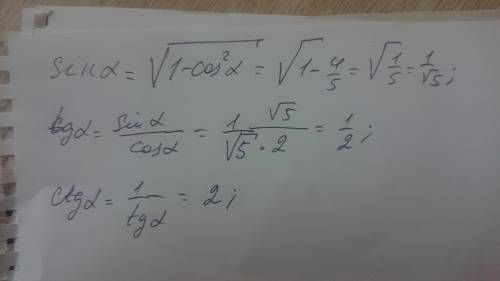 sin α = √(1-cos²α) = √(1-4/5) = √(1/5) = 1/√5;
tg α = sin α / cos α = 1 √5 / √5 · 2 = 1/2;
ctg α = 1 / tg α = 2;